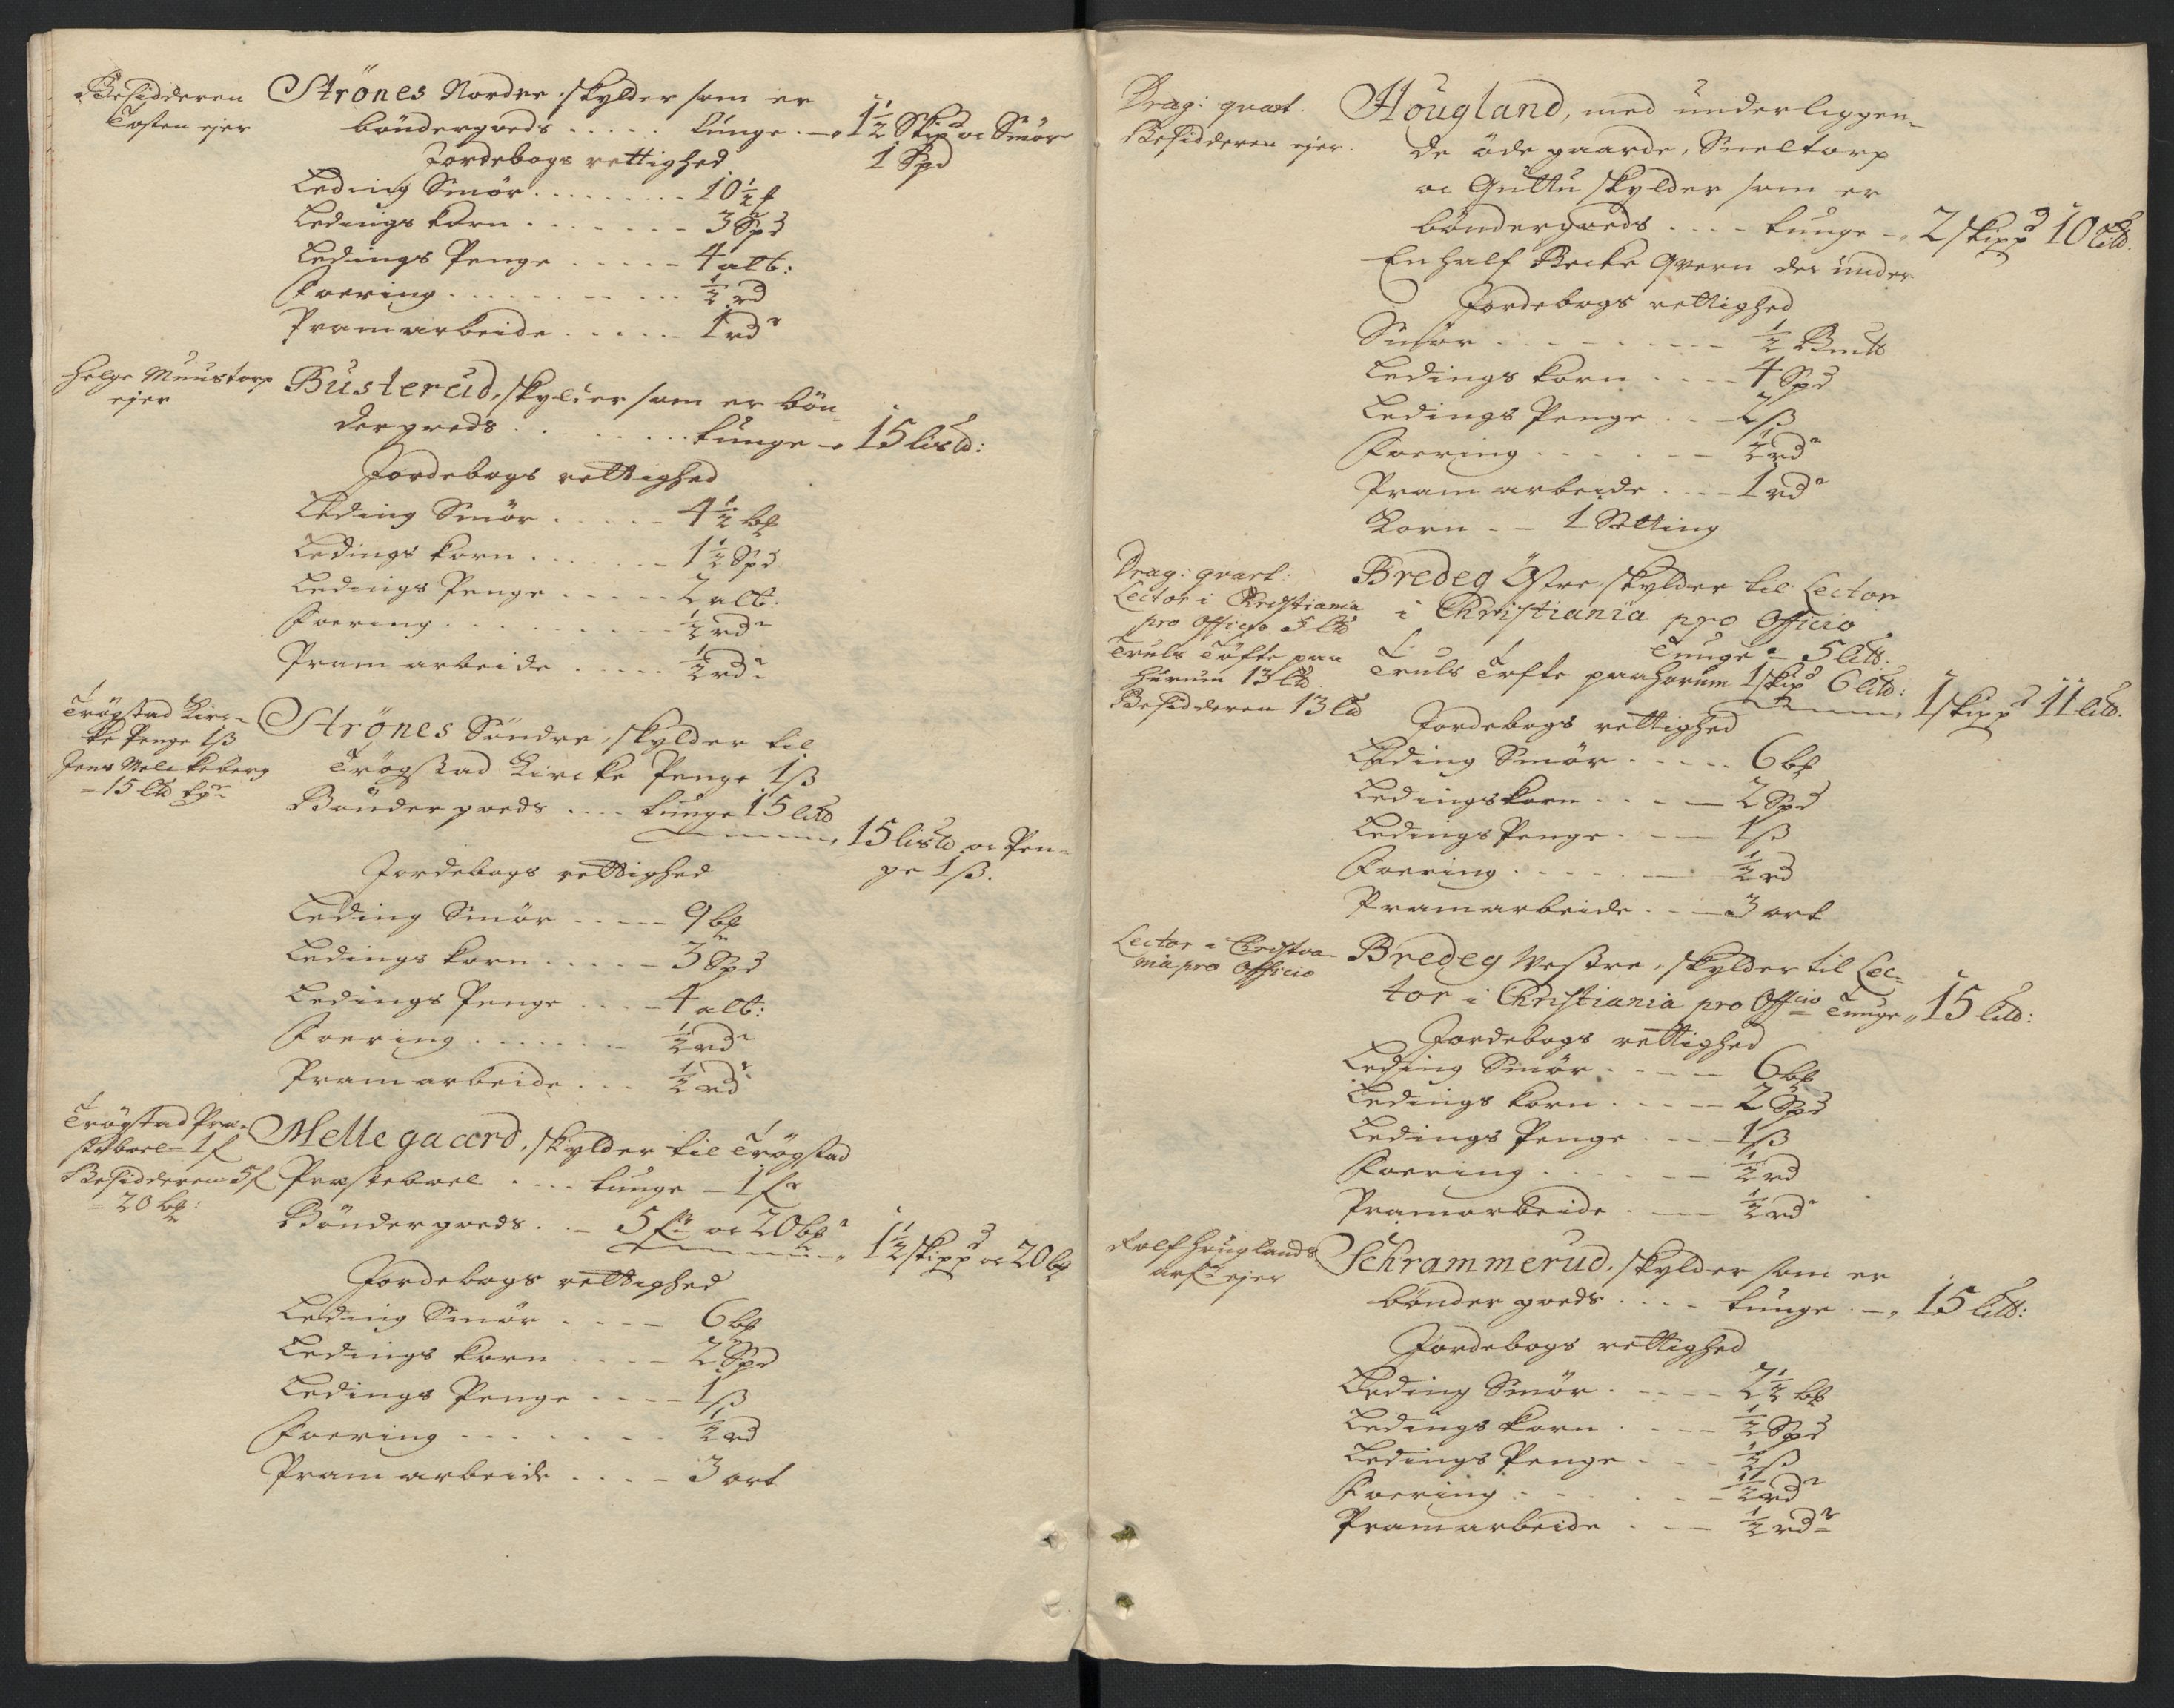 Besidderen
Tosten ejer
Strönes Nordre, skylder som er
böndergoeds ..... tunge - 1½ Skip oc Smör
1 Spd
Jordebogs rettighed
Leding Smör ......... 10½
Ledings korn ....... 3 Spd
Ledings Penge ..... 4 alb:
Foering ......... ½ rd
Pramarbeide ...... 1 rd
Helge Muustorp
ejer
Busterud, skylder som er bön
dergoeds ........ tunge - 15 lisd:
Jordebogs rettighed
Leding Smör ..... 4½ bp
Ledings korn ....... 1½ Spd
Ledings Penge ..... 2 alb:
Foering ......... ½ rd
Pram arbeide .... ½ rd
Trögstad Kirc-
ke Penge 1 ß
Jens Melckeberg
- 15 ltd
Strönes Söndre, skylder til
Trögstad Kircke Penge 1 ß
Bönder goeds .... tunge 15 litd
15 listd oc Pen-
ge 1 ß.
Jordebogs rettighed
Leding Smör ..... 9 bp
Ledings korn ..... 3 Spd
Ledings Penge .... 4 alb:
Foering ...... ½ rd
Pramarbeide ... ½ rd
Trögstad Præ-
steboel - 1 f
Besidderen 5 f
- 20 bp:
Mellegaard, skylder til Trögstad
Præsteboel .... tunge - 1 f
Bönder goeds .. 5 f oc 20 bp
1½ skipp oc 20 bp
Jordebogs rettighed
Leding Smör .... 6 bp
Ledings korn .... 2 Spd
Ledings Penge .... 1 ß
Foering ....... ½ rd
Pram arbeide .... 3 ort
Drag: qvart.
Besidderen ejer.
Hougland, med underliggen-
de öde gaarde, Sneltorp
oc Guttu skylder som er
böndergoeds .... tunge - 2 skipp 10 litd.
En half Becke Qvern der under
Jordebogs rettighed
Smör ........ ½
Ledings korn .... 4 Spd
Ledings Penge ... 2 ß
Foering ...... ½ rd
Pram arbeide .... 1 rd
Korn -- 1 Setting
Drag: qvart:
Lector i Christiania
pro Officio 5 ltd
Truls Tofte paa
Hurum 13 ltd
Besidderen 13 ltd
Bredeg Östre, skylder til Lector
i Christiania pro Officio
Tunge - 5 litd.
Truls Tofte paa Horum 1 skip 6 litd:
1 skipp 11 litd.
Jordebogs rettighed
Leding Smör ..... 6 bp
Ledingskorn .... 2 Spd
Ledings Penge .... 1 ß
Foering ...... ½ rd
Pramarbeide ... 3 ort
Lector i Christia-
nia, pro Officio
Bredeg Westre, skylder til Lec-
tor i Christiania pro Officio Tunge 15 litd:
Jordebogs rettighed
Leding Smör ..... 6 bp
Ledings korn .... 2 Spd
Ledings Penge .... 1 ß
Foering ...... ½ rd
Pramarbeide ... ½ rd
Rolf Houglands
arf: ejer
Schrammerud, skylder som er
bönder goeds .... tunge - 15 litd:
Jordebogs rettighed
Leding Smör ..... 2½ bp
Ledings korn .... ½ Spd
Ledings Penge ... ½ ß
Foering ...... ½ rd
Pramarbeide ... ½ rd